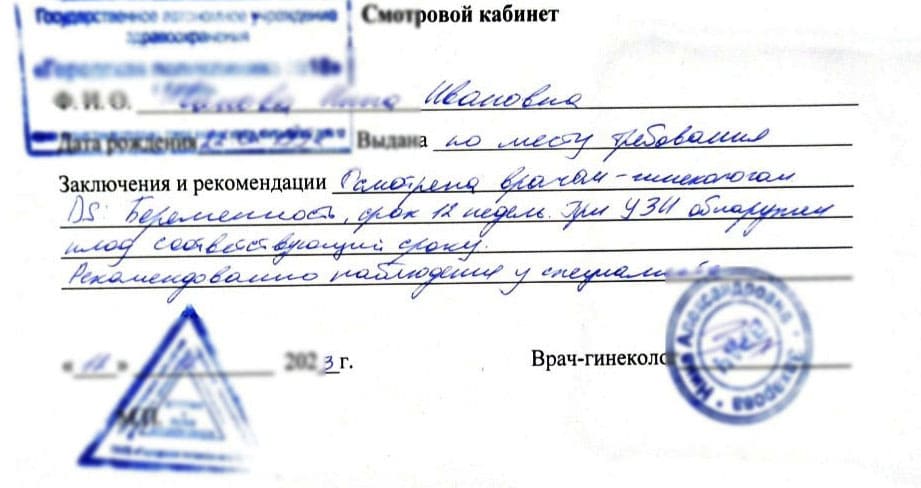 Государственное автономное учреждение
здравоохранения
Смотровой кабинет
Ф. И. О. Нина Ивановна
Дата рождения Выдана по месту требования
Заключения и рекомендации Осмотрена врачом-гинекологом
DS: Беременность, срок 12 недель. При УЗИ обнаружен
плод соответствующий сроку.
Рекомендованно наблюдение у специалиста
«11» 2023 г.
Врач-гинеколог
М.П.
Александровна
Захарова
врач